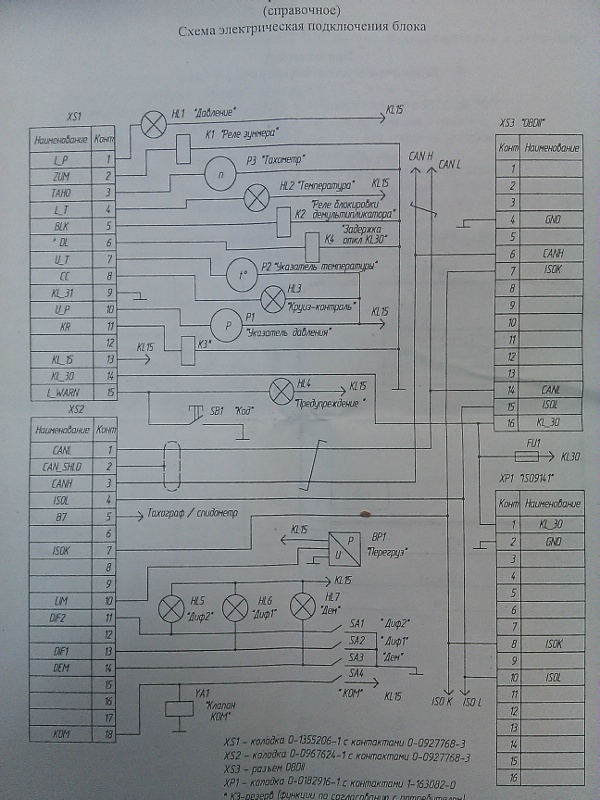 (справочное)
Схема электрическая подключения блока
XS1
Наименование Конт
L_P 1
ZUM 2
TAHO 3
L_T 4
BLK 5
* DL 6
U_T 7
CC 8
KL_31 9
U_P 10
KR 11
12
KL_15 13
KL_30 14
L_WARN 15
HL1 "Давление"
KL15
K1 "Реле зуммера"
P3 "Тахометр"
n
HL2 "Температура"
KL15
"Реле блокировки
K2 демультипликатора"
"Задержка
K4 откл KL30"
P2 "Указатель температуры"
t°
HL3
"Круиз-контроль"
KL15
P1
P
"Указатель давления"
K3*
KL15
HL4
KL15
"Предупреждение"
SB1 "Код"
CAN H
CAN L
XS3 "OBDII"
Конт Наименование
1
2
3
4 GND
5
6 CANH
7 ISOK
8
9
10
11
12
13
14 CANL
15 ISOL
16 KL_30
FU1
KL30
XS2
Наименование Конт
CANL 1
CAN_SHLD 2
CANH 3
ISOL 4
B7 5
6
ISOK 7
8
9
LIM 10
DIF2 11
12
DIF1 13
DEM 14
15
16
17
KOM 18
Тахограф / спидометр
KL15
BP1
P
U
"Перегруз"
KL15
HL5
"Диф2"
HL6
"Диф1"
HL7
"Дем"
SA1 "Диф2"
SA2 "Диф1"
SA3 "Дем"
SA4
"КОМ"
KL15
YA1
"Клапан
КОМ"
ISO K
ISO L
XP1 "ISO9141"
Конт Наименование
1 KL_30
2 GND
3
4
5
6
7
8 ISOK
9
10 ISOL
11
12
13
14
15
16
XS1 – колодка 0-1355206-1 с контактами 0-0927768-3
XS2 – колодка 0-0967624-1 с контактами 0-0927768-3
XS3 – разъем OBDII
XP1 – колодка 0-0182916-1 с контактами 1-163082-0
* K3-резерв (функции по согласованию с потребителем)